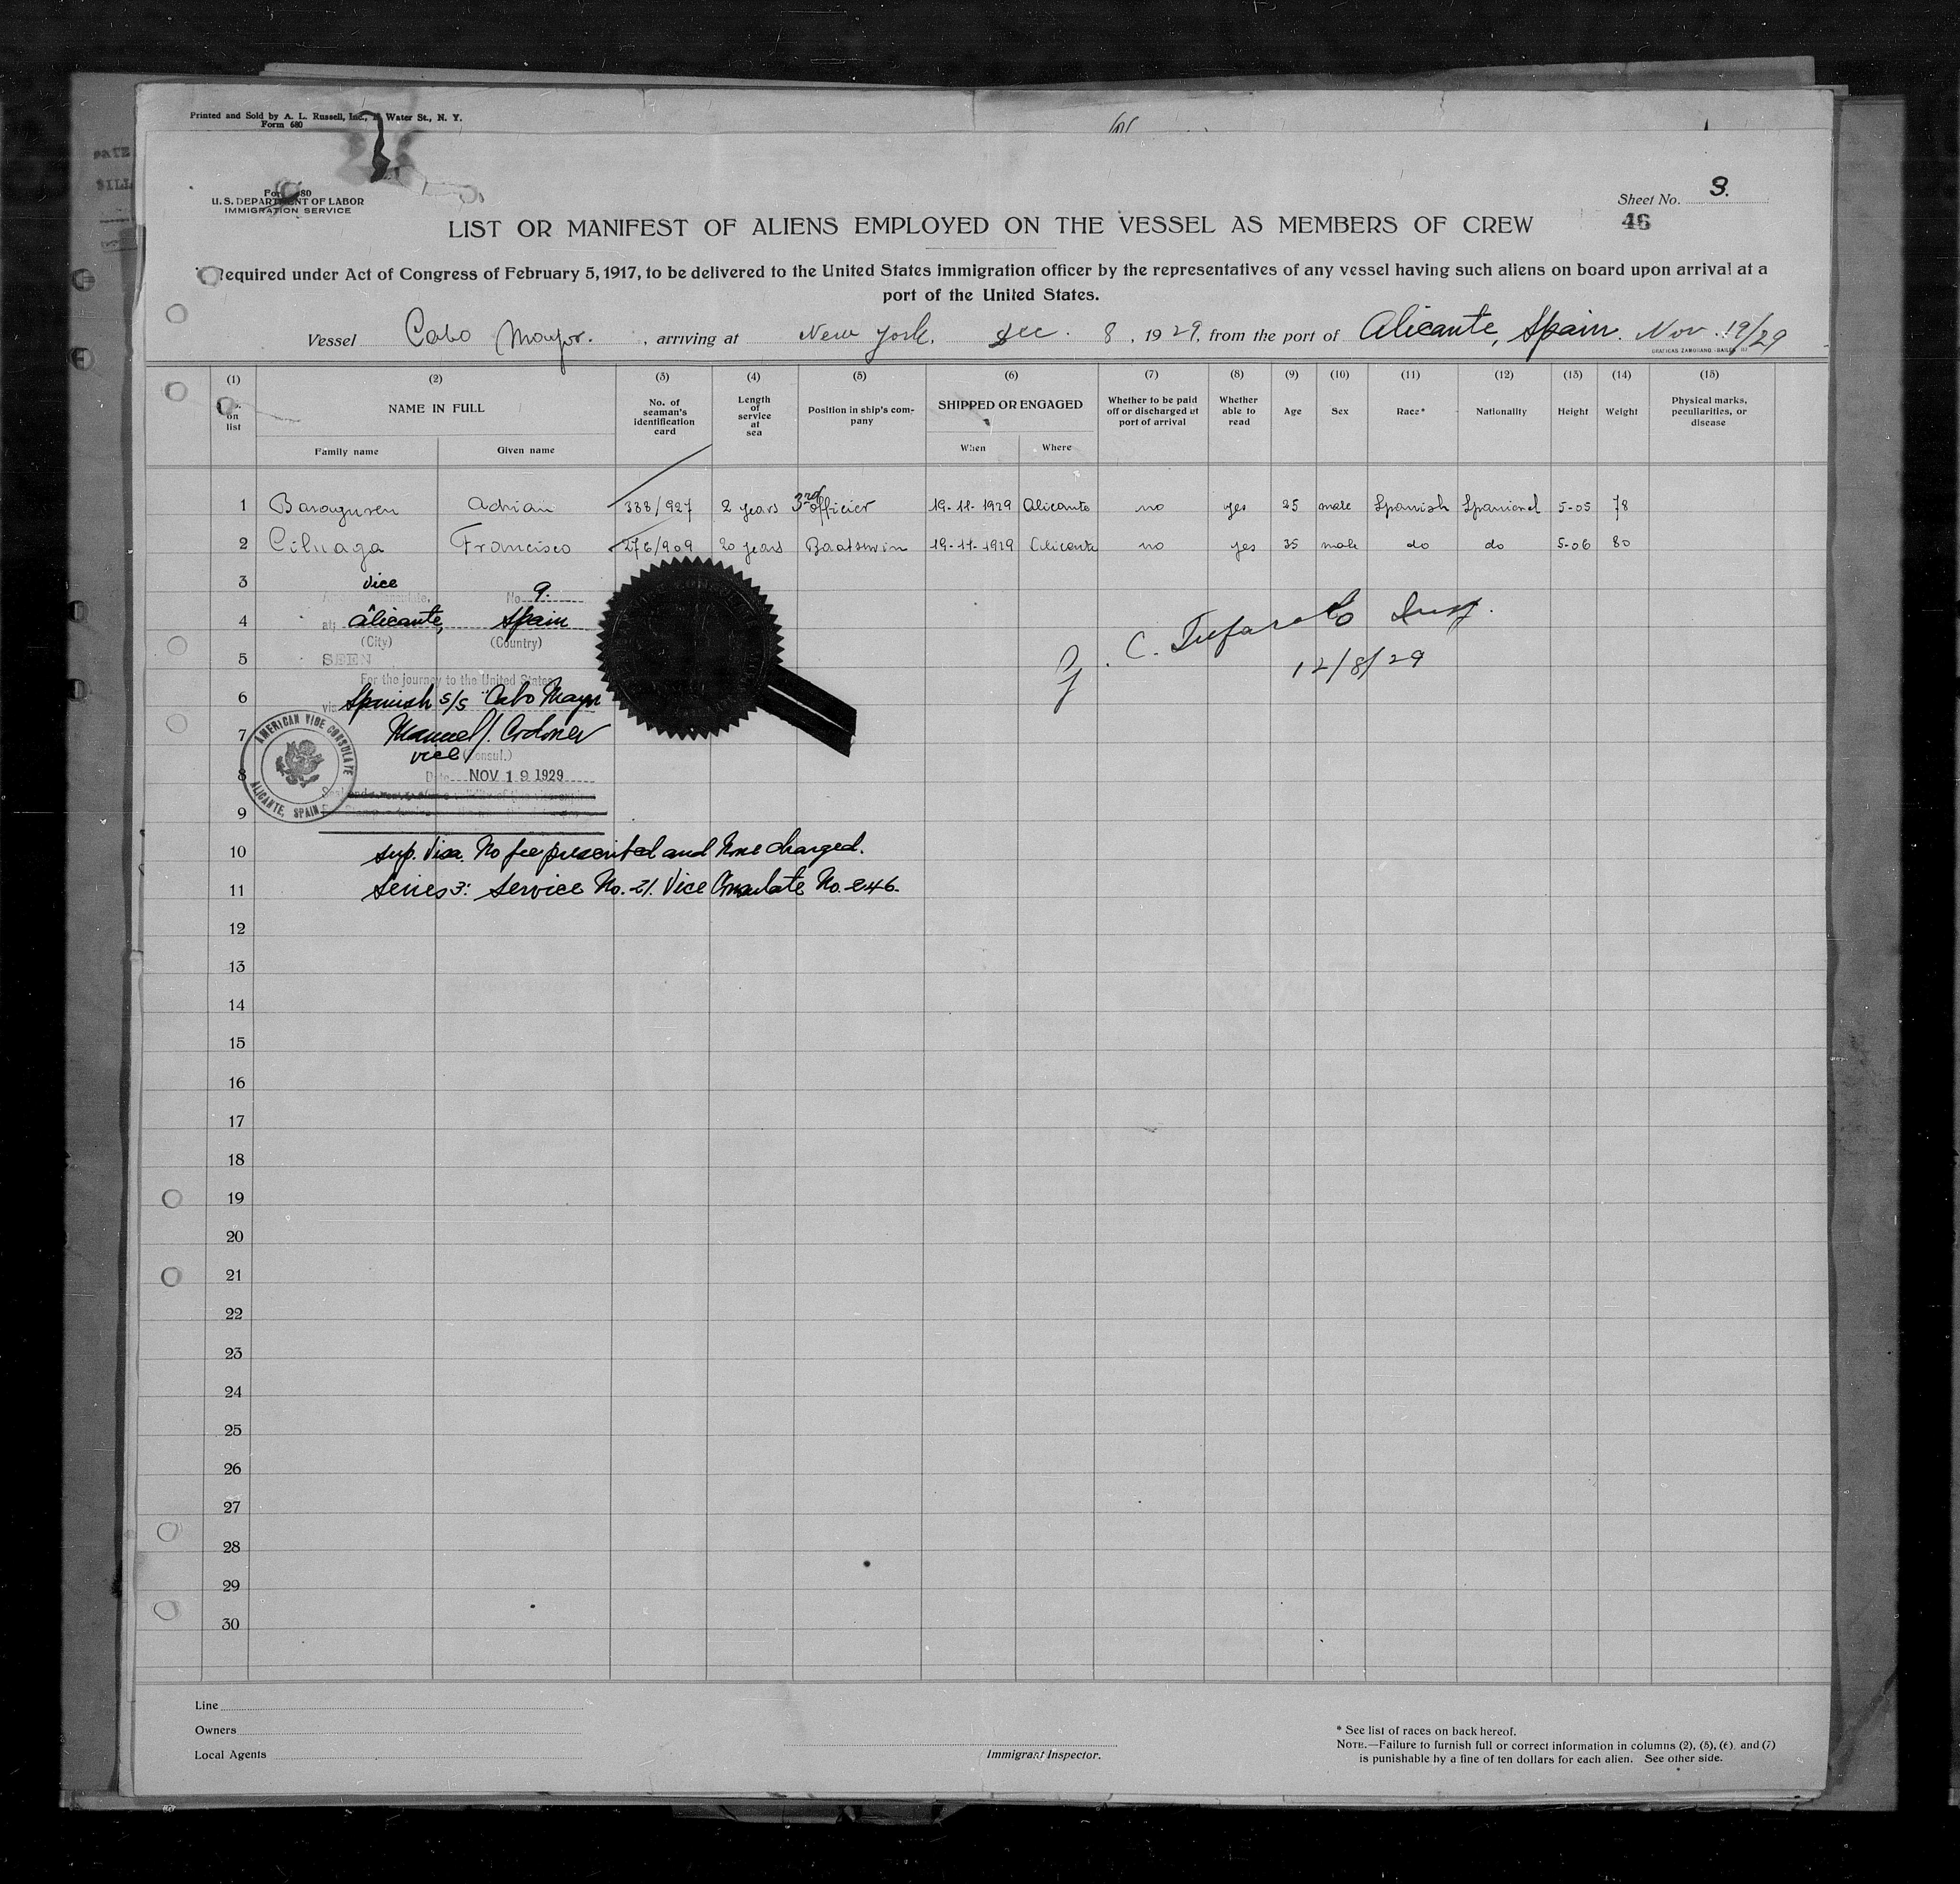 Printed and Sold by A. L. Russell, Inc., Water St., N. Y.
Form 680
U. S. DEPARTMENT OF LABOR
IMMIGRATION SERVICE
Sheet No. 3.
46
LIST OR MANIFEST OF ALIENS EMPLOYED ON THE VESSEL AS MEMBERS OF CREW
Required under Act of Congress of February 5, 1917, to be delivered to the United States immigration officer by the representatives of any vessel having such aliens on board upon arrival at a
port of the United States.
Vessel Cabo Mayor. , arriving at New York, Dec. 8, 1929, from the port of Alicante, Spain. Nov. 19/29
(1) (2) (3) (4) (5) (6) (7) (8) (9) (10) (11) (12) (13) (14) (15)
on list
NAME IN FULL
Family name
Given name
No. of seaman's identification card
Length of service at sea
Position in ship's company
SHIPPED OR ENGAGED
When
Where
Whether to be paid off or discharged at port of arrival
Whether able to read
Age
Sex
Race*
Nationality
Height
Weight
Physical marks, peculiarities, or disease
1 Baraguren Adrian 388/927 2 years 3rd officier 19-11-1929 Alicante no yes 25 male Spanish Spaniard 5-05 78
2 Ciluaga Francisco 276/909 20 years Boatswin 19-11-1929 Alicante no yes 35 male do do 5-06 80
3 vice No. 9.
4 at; Alicante, Spain
(City) (Country)
5 SEEN
For the journey to the United States
6 via Spanish s/s "Cabo Mayor
7 Manuel J. Codoner
vice (Consul.)
8 Date NOV 19 1929
AMERICAN VICE CONSULATE
ALICANTE, SPAIN
9
10 Sup. Visa. No fee prescribed and None charged.
11 Series 3: Service No. 21. Vice Consulate No. 246.
C. Insp.
12/8/29
12
13
14
15
16
17
18
19
20
21
22
23
24
25
26
27
28
29
30
Line
Owners
Local Agents
Immigrant Inspector.
* See list of races on back hereof.
NOTE.—Failure to furnish full or correct information in columns (2), (5), (6), and (7)
is punishable by a fine of ten dollars for each alien. See other side.